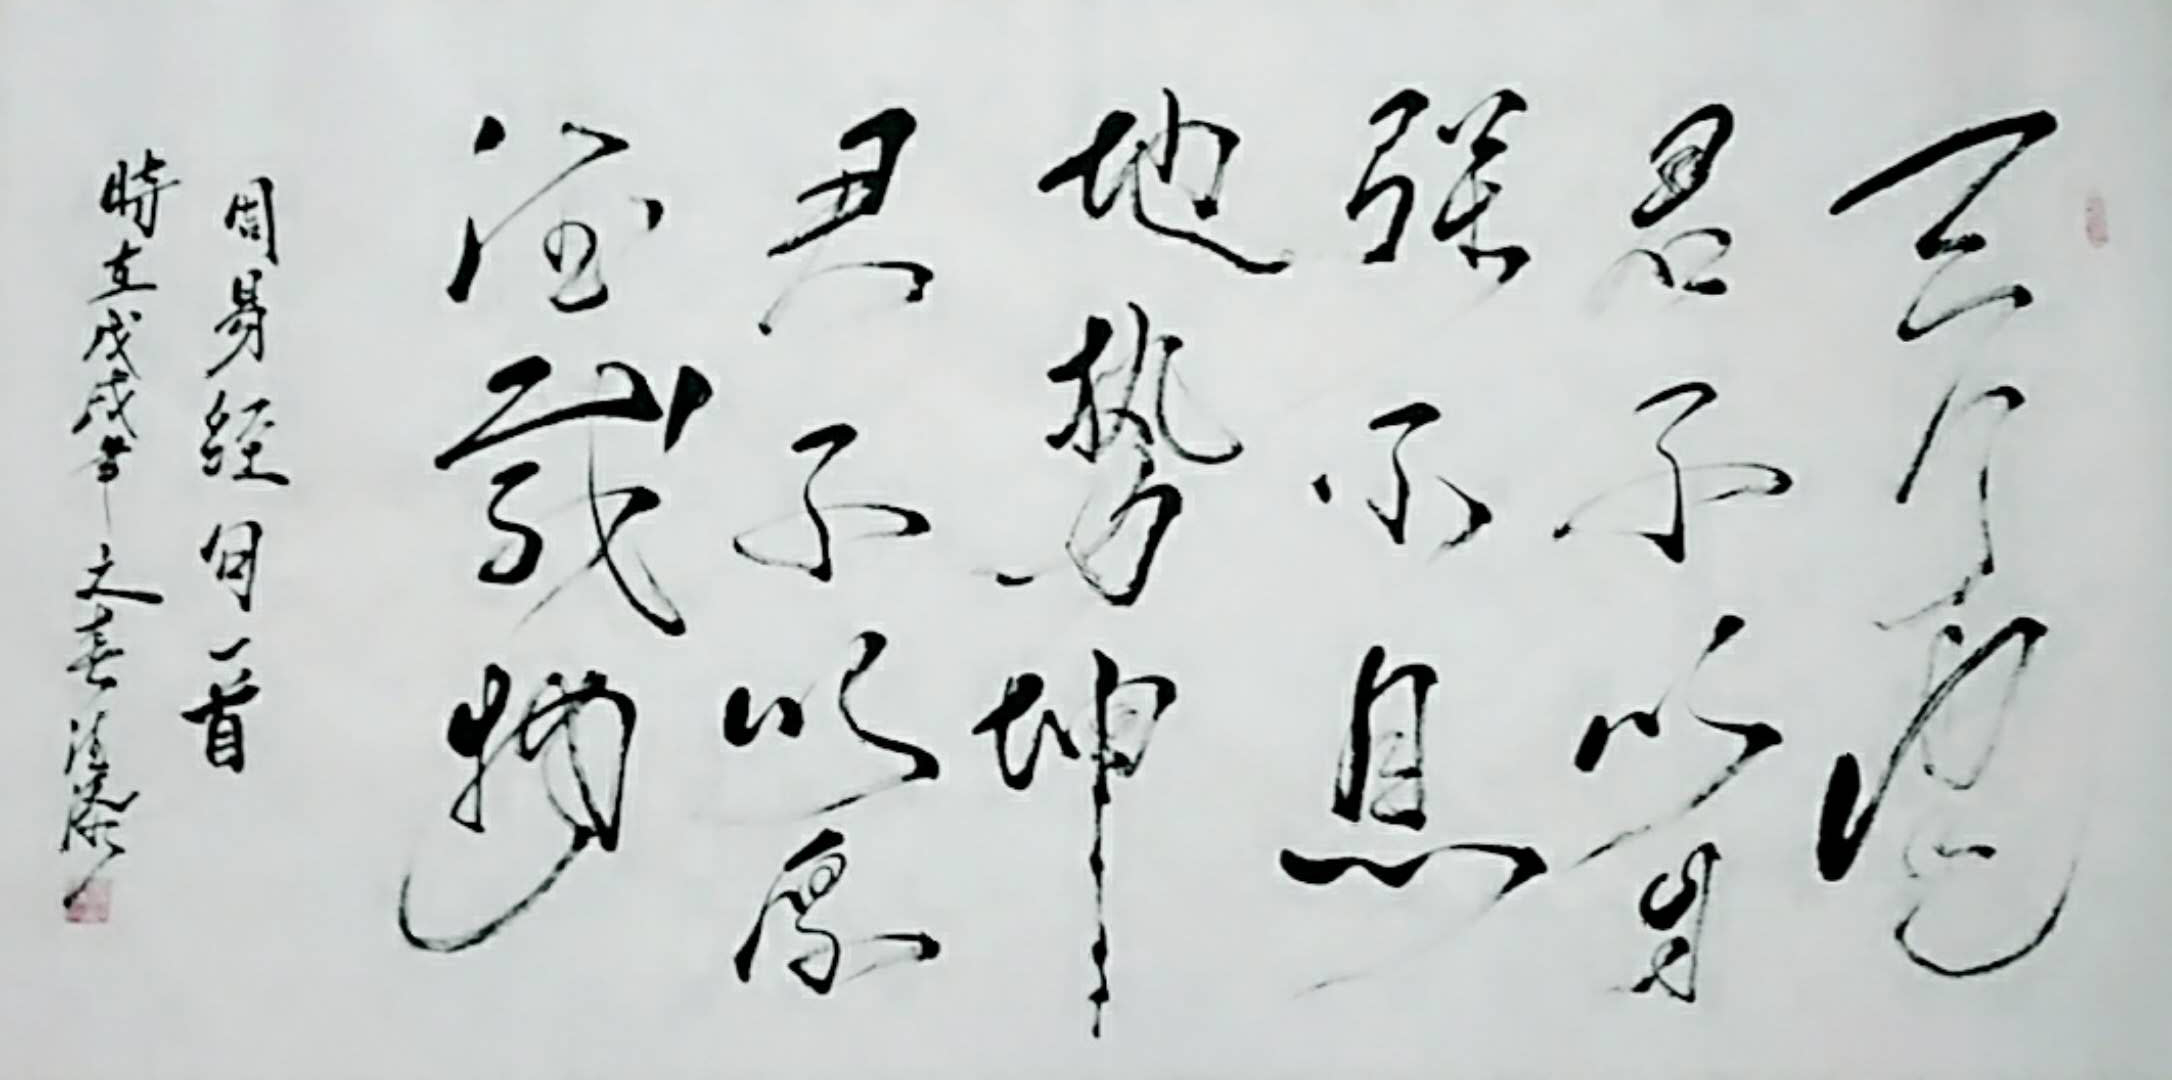 天行健
君子以自
强不息
地势坤
君子以厚
德载物
周易经句一首
時在戊戌年文春